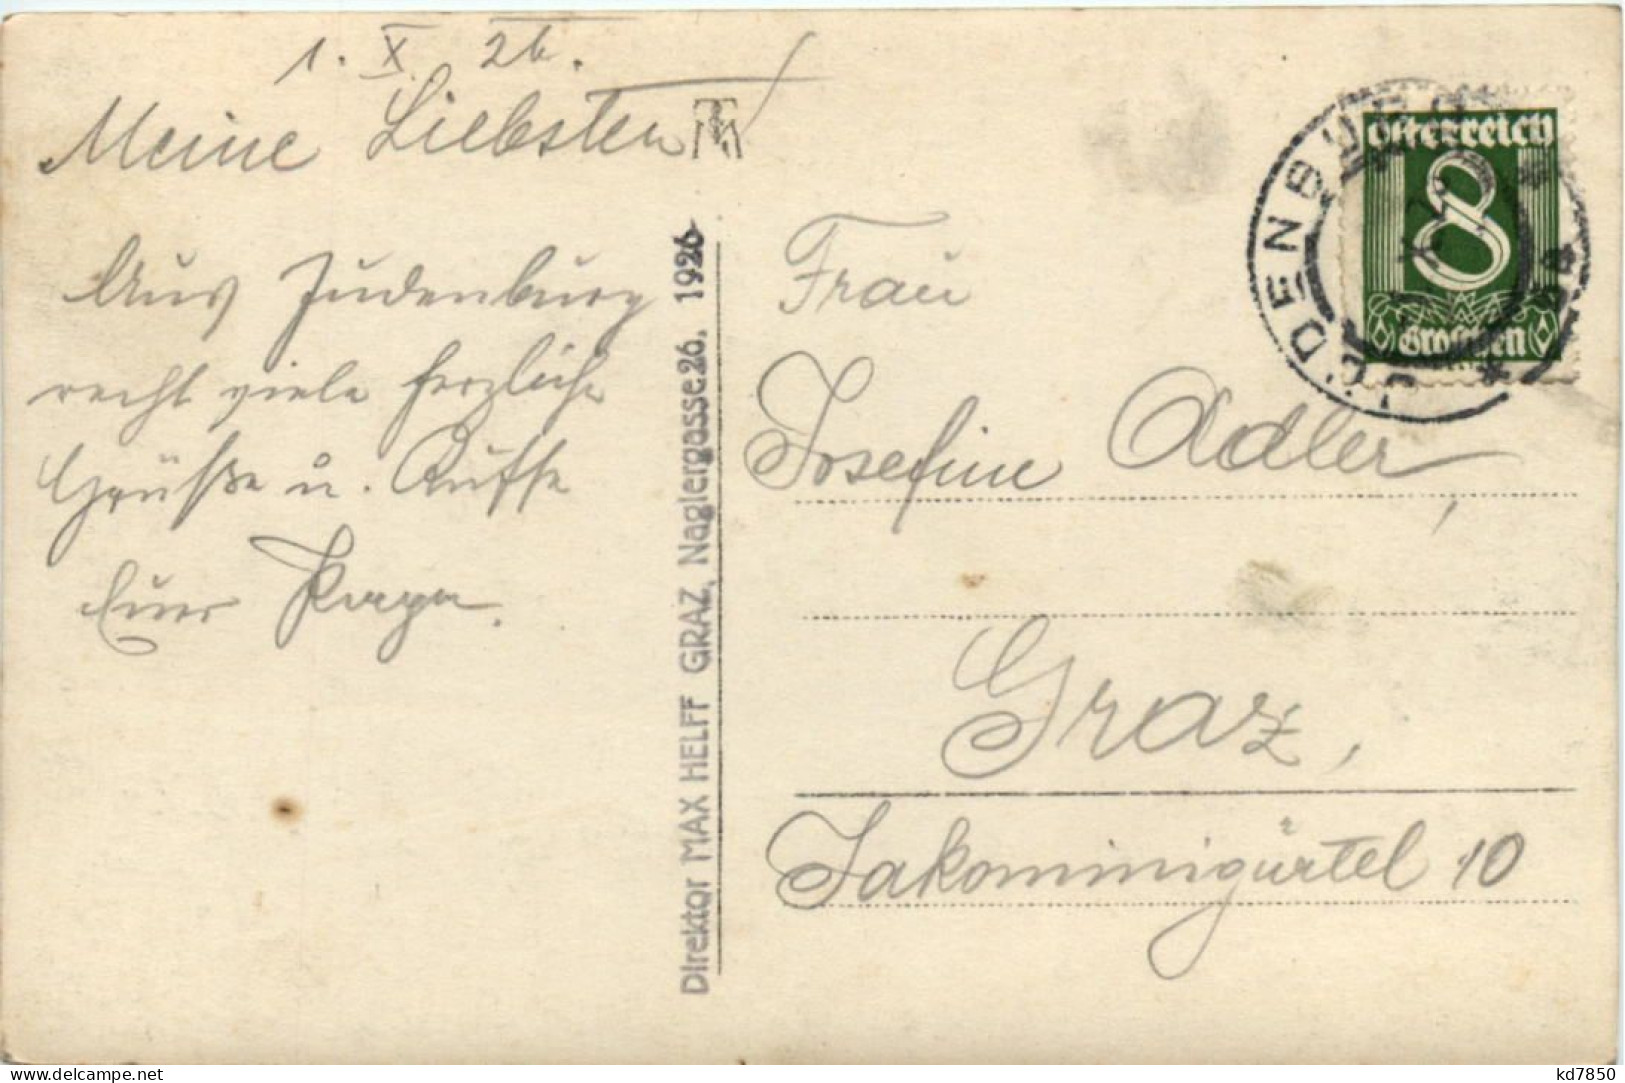 1. X. 26.
Meine Liebsten!
Aus Judenburg
recht viele herzliche
Grüße u. Küsse
Euer Papa.
Direktor MAX HELFF GRAZ, Naglergasse 26. 1926
Frau
Josefine Adler,
Graz,
Jakominigürtel 10
Österreich
8
Groschen
JUDENBURG
www.delcampe.net
kd7850